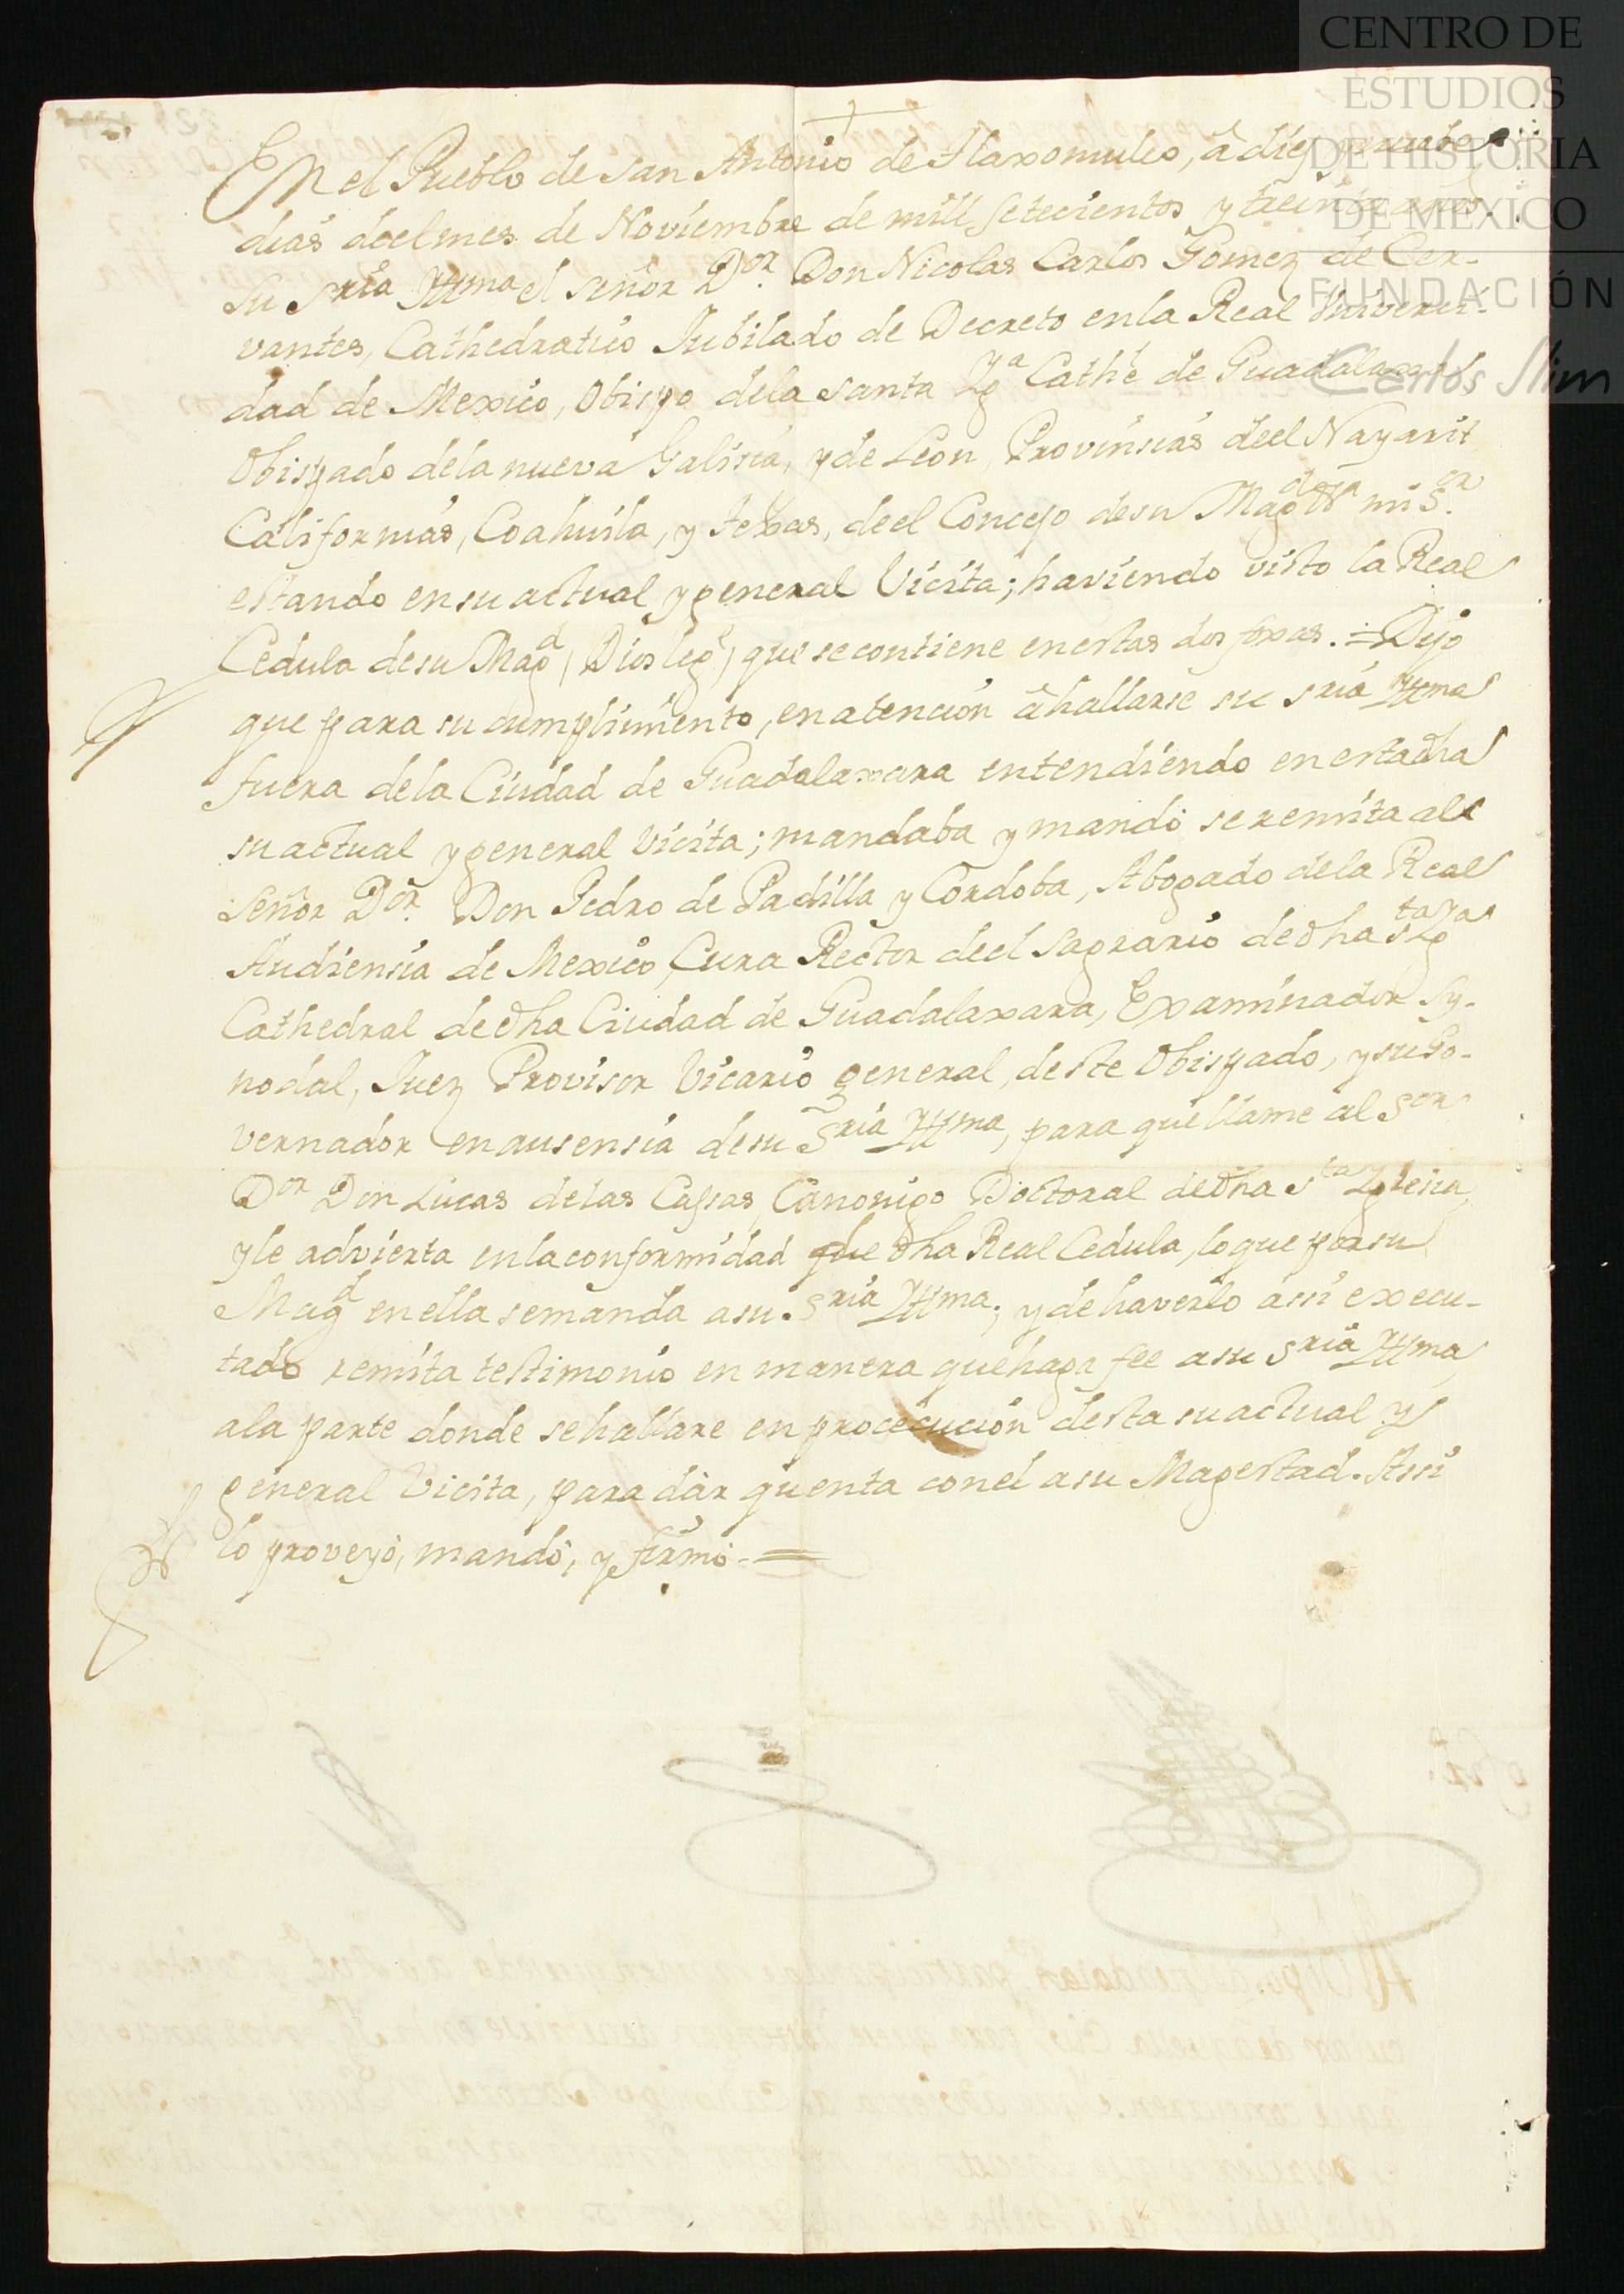 CENTRO DE
ESTUDIOS
DE HISTORIA
DE MÉXICO
FUNDACIÓN
Carlos Slim
En el Pueblo de san Antonio de Tlaxomulco, â diez y nuebe
dias deel mes de Noviembre de mill setecientos y treinta años
su sria Illma el señor Dor. Don Nicolas Carlos Gomez de Cer-
vantes, Cathedratico Jubilado de Decreto en la Real Universi-
dad de Mexico, Obispo dela santa Yga Cathe de Guadalaxara
Obispado dela nueva Galisia, y de Leon, Provinsias deel Nayarit
Californias, Coahuila, y Texas, deel Concejo de su Magd mi Sor
estando en su actual y general Vicita; haviendo visto la Real
Cedula de su Magd (Dios le ge) que se contiene en estas dos foxas. = Dijo
que para su cumplimiento, en atencion â hallarse su sria Illma
fuera dela Ciudad de Guadalaxara entendiendo en esta dha
su actual y general Vicita; mandaba y mandò se remita al
señor Dor. Don Pedro de Padilla y Cordoba, Abogado dela Real
Audiensia de Mexico, Cura Rector deel sagrario de dha sta Yga
Cathedral de dha Ciudad de Guadalaxara, Examinador Sy-
nodal, Juez Provisor Vicario general, deste Obispado, y su Go-
vernador en ausensia de su Sria Illma, para que llame al Sor
Dor Don Lucas delas Cassas, Canonigo Doctoral de dha sta Yglesia
y le advierta en la conformidad que dha Real Cedula, lo que por su
Magd en ella se manda a su Sria Illma; y de haverlo assi execu-
tado remita testimonio en manera que haga fee a su sria Illma
ala parte donde se hallare en procecucion desta su actual y
general Vicita, para dàr quenta con el a su Magestad. Assi
lo proveyò, mandò, y firmò =